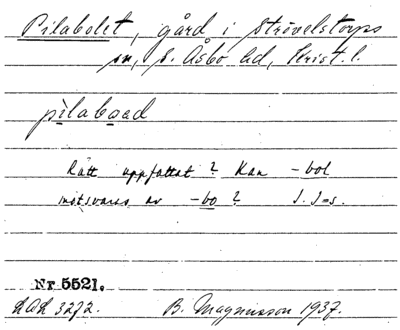 Pilabolet, gård i Strövelstorps
sn, S. Åsbo hd, Krist. l.
pilaboad
Rätt uppfattat? Kan -bol
motsvaras av -bo? J. J-s.
Nr 5521.
LAL 3272. B. Magnusson 1937.